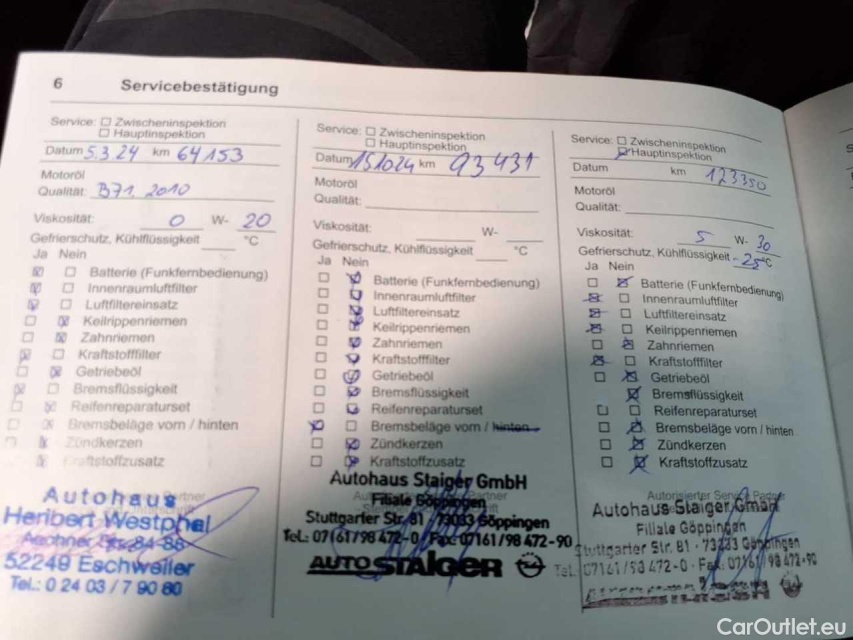 6 Servicebestätigung
Service: Zwischeninspektion
Hauptinspektion
Datum 5.3.24 km 64153
Motoröl
Qualität: B71 2010
Viskosität: 0 W- 20
Gefrierschutz, Kühlflüssigkeit °C
Ja Nein
Batterie (Funkfernbedienung)
Innenraumluftfilter
Luftfiltereinsatz
Keilrippenriemen
Zahnriemen
Kraftstofffilter
Getriebeöl
Bremsflüssigkeit
Reifenreparaturset
Bremsbeläge vorn / hinten
Zündkerzen
Kraftstoffzusatz
Autohaus
Heribert Westphal
52249 Eschweiler
Tel.: 0 24 03 / 7 90 80
Service: Zwischeninspektion
Hauptinspektion
Datum 151024 km 93431
Motoröl
Qualität:
Viskosität: W-
Gefrierschutz, Kühlflüssigkeit °C
Ja Nein
Batterie (Funkfernbedienung)
Innenraumluftfilter
Luftfiltereinsatz
Keilrippenriemen
Zahnriemen
Kraftstofffilter
Getriebeöl
Bremsflüssigkeit
Reifenreparaturset
Bremsbeläge vorn / hinten
Zündkerzen
Kraftstoffzusatz
Autohaus Staiger GmbH
Filiale Göppingen
Stuttgarter Str. 81 73033 Göppingen
Tel.: 07161/98 472-0 Fax: 07161/98 472-90
AUTO STAIGER
Service: Zwischeninspektion
Hauptinspektion
Datum km 123350
Motoröl
Qualität:
Viskosität: 5 W- 30
Gefrierschutz, Kühlflüssigkeit -25°C
Ja Nein
Batterie (Funkfernbedienung)
Innenraumluftfilter
Luftfiltereinsatz
Keilrippenriemen
Zahnriemen
Kraftstofffilter
Getriebeöl
Bremsflüssigkeit
Reifenreparaturset
Bremsbeläge vorn / hinten
Zündkerzen
Kraftstoffzusatz
Autorisierter Service Partner
Autohaus Staiger GmbH
Filiale Göppingen
Stuttgarter Str. 81
CarOutlet.eu